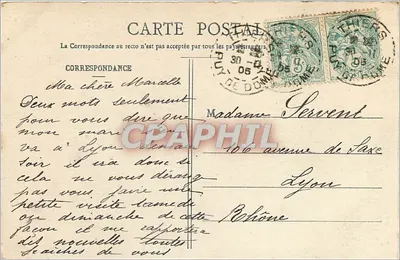 CARTE POSTALE
La Correspondance au recto n'est pas acceptée par tous les pays étrangers
CORRESPONDANCE
Ma chère Marcelle
Deux mots seulement
pour vous dire que
mon mari
va à Lyon
soir il ira donc se
cela ne vous dérange
pas vous faire une
petite visite samedi
dimanche de cette
façon il me rapportera
des nouvelles toutes
fraîches de vous
THIERS
30
05
PUY DE DOME
THIERS
05
PUY DE DOME
Madame Servent
106 avenue de Saxe
Lyon
Rhône
CPAPHIL